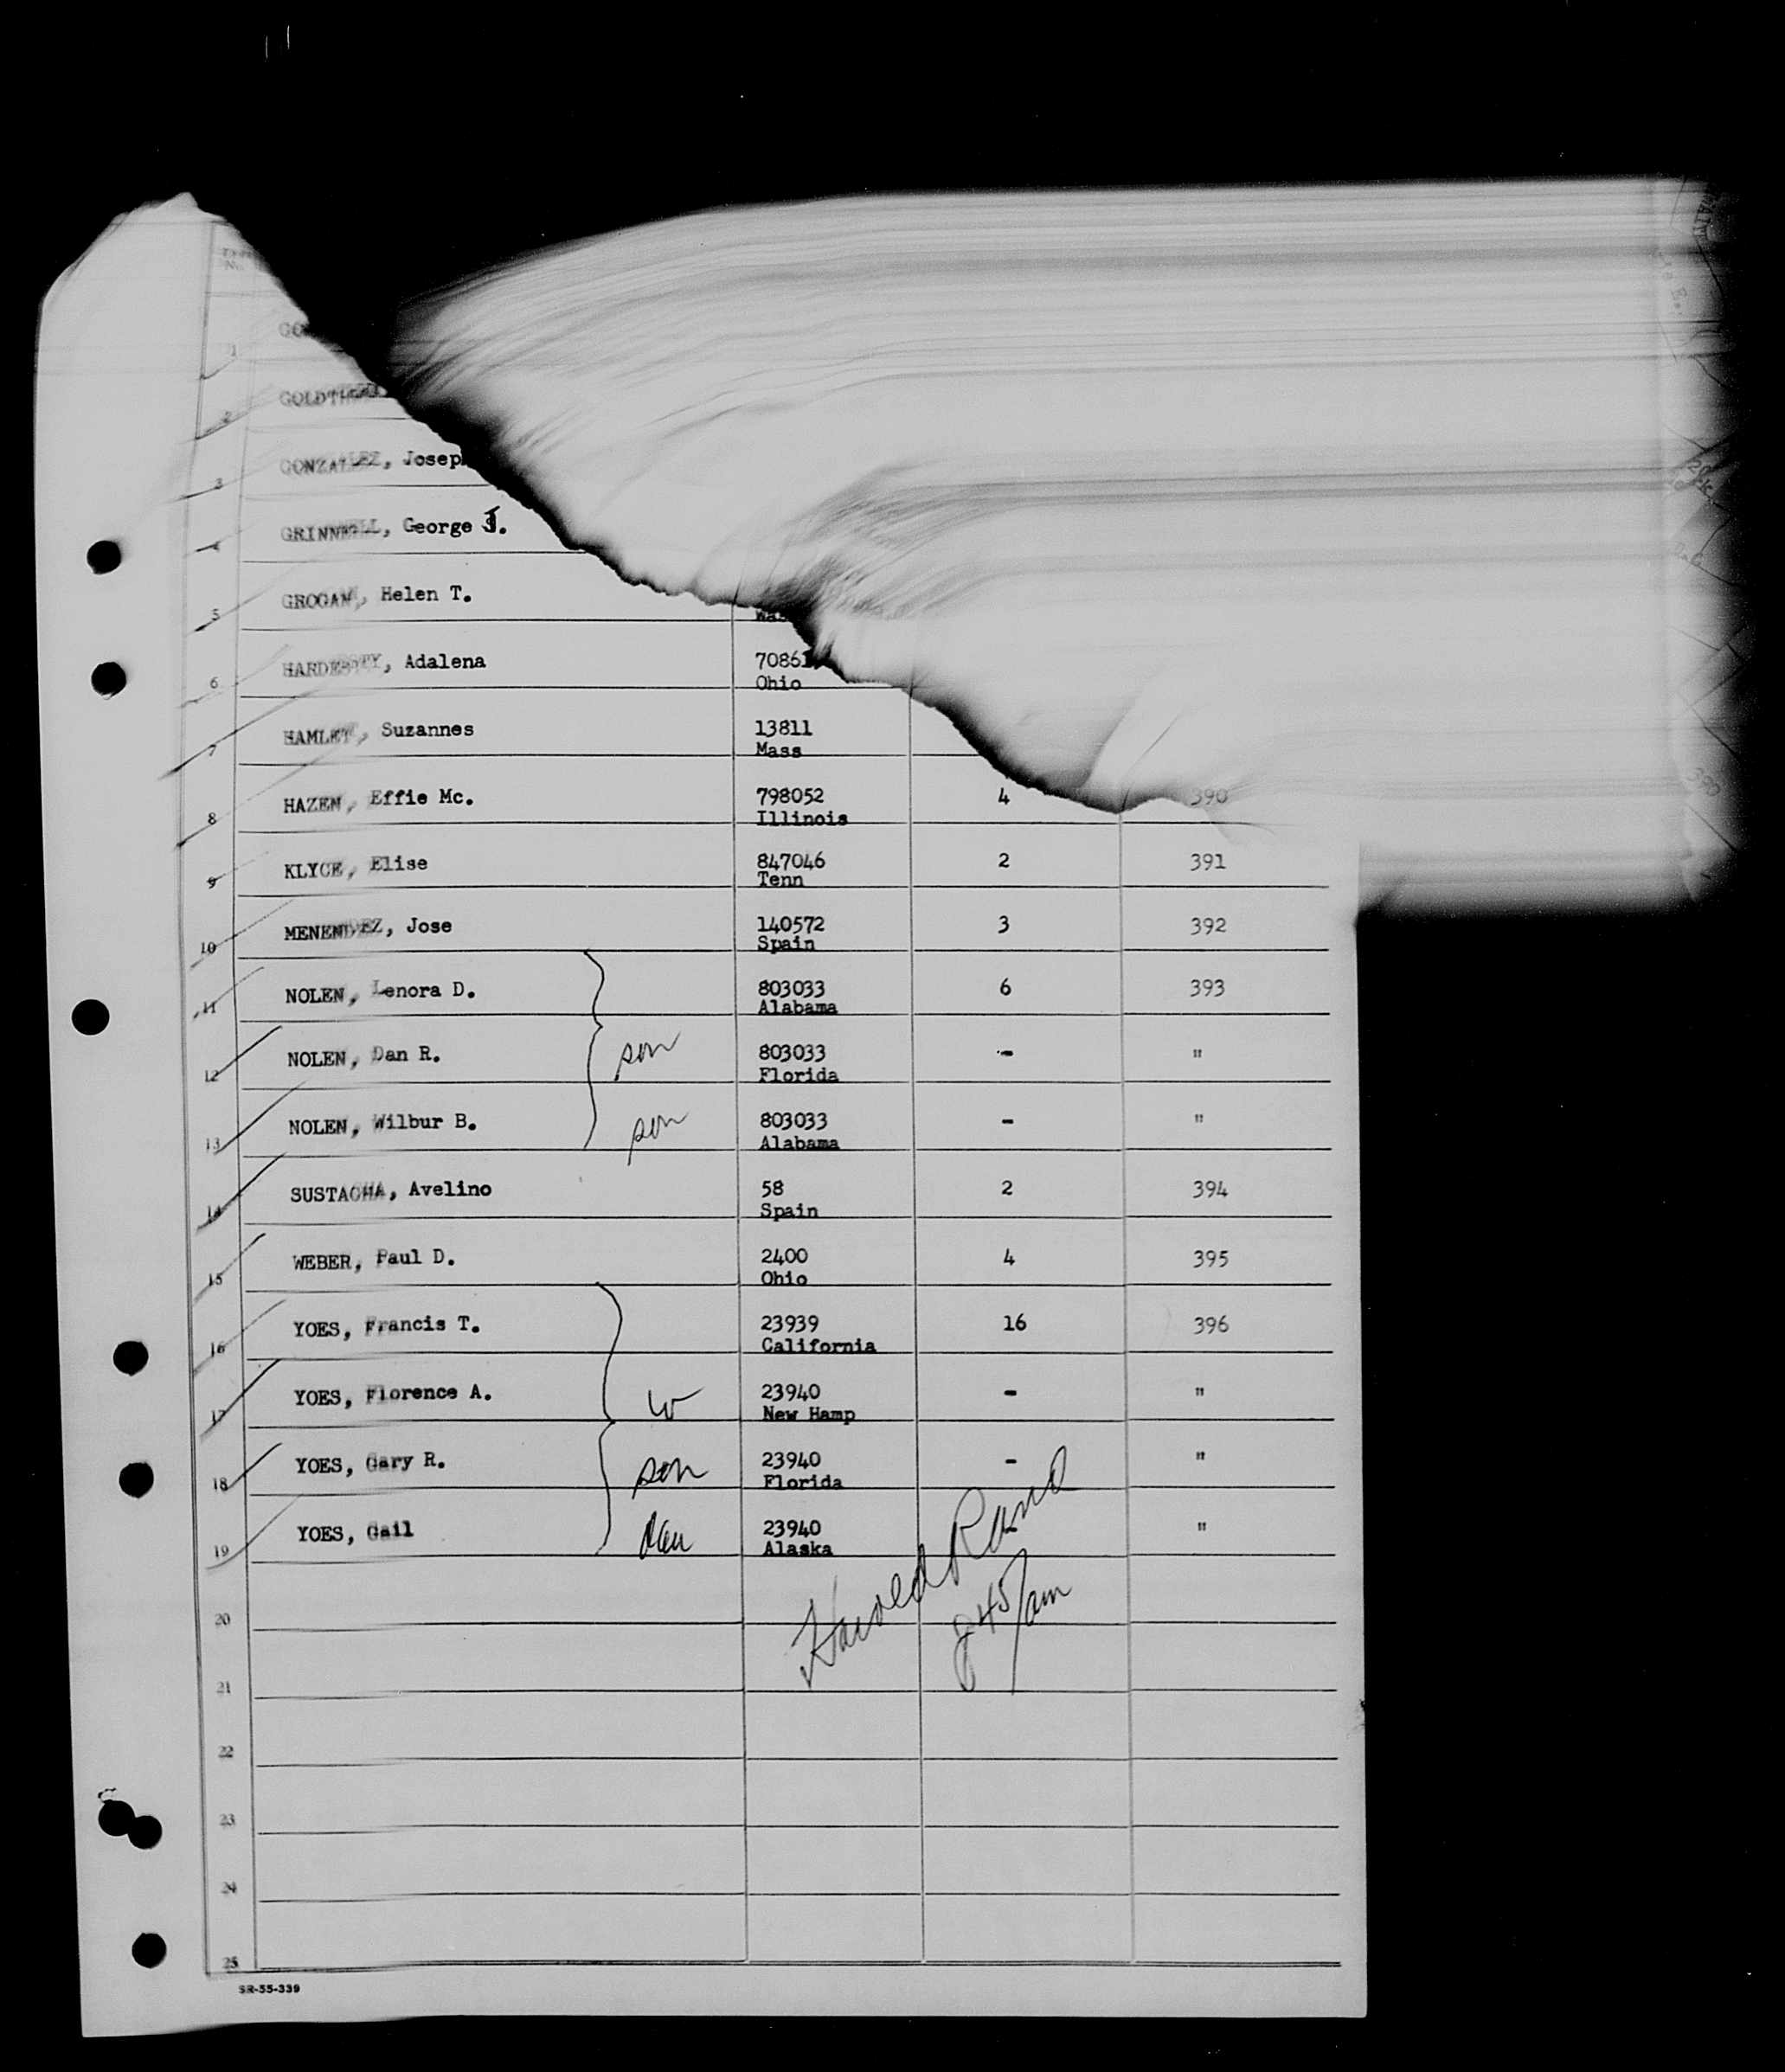 No.
1 GO
2 GOLDT
3 GONZALEZ, Joseph
4 GRINNELL, George J.
5 GROGAN, Helen T.
6 HARDESTY, Adalena 7086
Ohio
7 HAMLET, Suzannes 13811
Mass
8 HAZEN, Effie Mc. 798052 4 390
Illinois
9 KLYCE, Elise 847046 2 391
Tenn
10 MENENDEZ, Jose 140572 3 392
Spain
11 NOLEN, Lenora D. 803033 6 393
Alabama
12 NOLEN, Dan R. son 803033 - "
Florida
13 NOLEN, Wilbur B. son 803033 - "
Alabama
14 SUSTACHA, Avelino 58 2 394
Spain
15 WEBER, Paul D. 2400 4 395
Ohio
16 YOES, Francis T. 23939 16 396
California
17 YOES, Florence A. w 23940 - "
New Hamp
18 YOES, Gary R. son 23940 - "
Florida
19 YOES, Gail dau 23940 "
Alaska
Harold Rand
845/am
20
21
22
23
24
25
SR-55-339